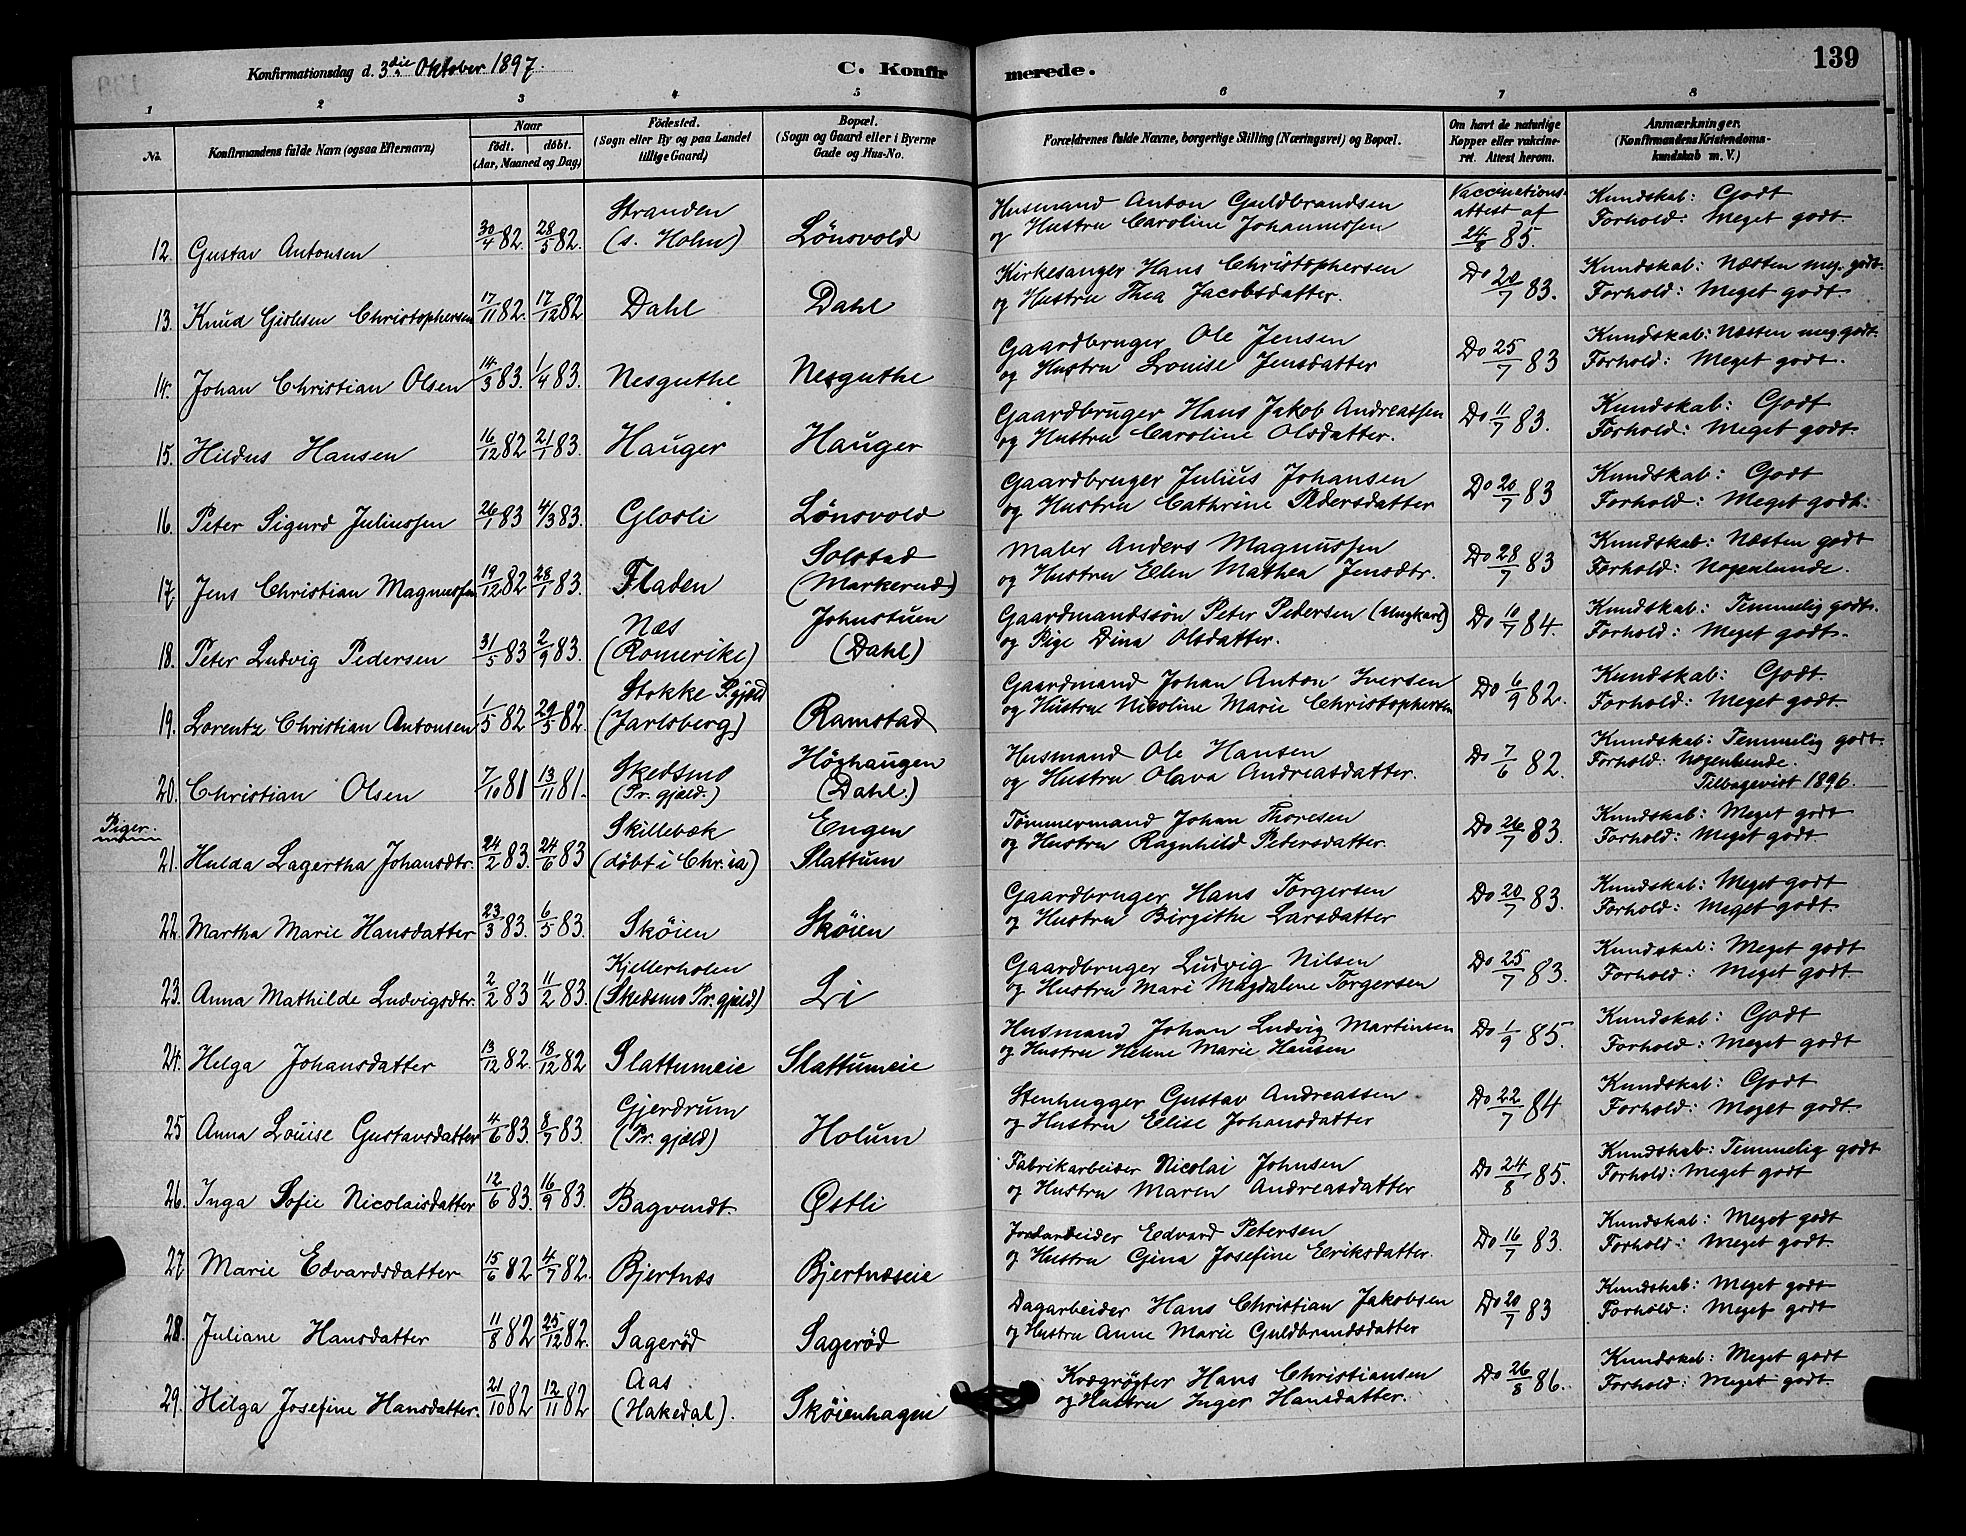 Konfirmationsdag d. 3die Oktober 1897.
C. Konfirmerede.
139
1 2 3 4 5 6 7 8
No.
Konfirmandens fulde Navn (ogsaa Efternavn.)
Naar
født. døbt.
(Aar, Maaned og Dag.)
Fødested.
(Sogn eller By og paa Landet
tillige Gaard.)
Bopæl.
(Sogn og Gaard eller i Byerne
Gade og Hus-No.
Forældrenes fulde Navne, borgerlige Stilling (Næringsvei) og Bopæl.
Om havt de naturlige
Kopper eller vakcine-
ret. Attest herom.
Anmærkninger.
(Konfirmandens Kristendoms-
kundskab m. V.)
12. Gustav Antonsen 30/4 82. 28/5 82. Stranden (s. Holm) Lönsvold
Husmand Anton Guldbrandsen
og Hustru Caroline Johannessen
Vaccinations-
attest af
24/8 85.
Kundskab: Godt
Forhold: Meget godt
13. Knud Gislesen Christophersen 17/11 82. 17/12 82 Dahl Dahl
Kirkesanger Hans Christophersen
og Hustru Thea Jacobsdatter.
Do 20/7 83.
Kundskab: Næsten meg. godt.
Forhold: Meget godt.
14. Johan Christian Olsen 14/3 83. 1/4 83. Nesguthe Nesguthe
Gaardbruger Ole Jensen
og Hustru Louise Jensdatter
Do 25/7 83
Kundskab: Næsten meg godt.
Forhold: Meget godt.
15. Hildus Hansen 16/12 82 21/1 83. Hauger Hauger
Gaardbruger Hans Jakob Andreassen
og Hustru Caroline Olsdatter.
Do 11/7 83.
Kundskab: Godt
Forhold: Meget godt.
16. Peter Sigurd Juliussen 26/1 83 4/3 83. Glosli Lönsvold
Gaardbruger Julius Johansen
og Hustru Cathrine Pedersdatter
Do 20/7 83
Kundskab: Godt
Forhold: Meget godt.
17. Jens Christian Magnussen 19/12 82 28/1 83. Fladen Solstad (Markerud)
Maler Anders Magnussen
og Hustru Ellen Mathea Jensdtr.
Do 28/7 83
Kundskab: Næsten godt
Forhold: Nogenlunde.
18. Peter Ludvig Pedersen 31/5 83 2/9 83. Næs (Romerike) Johnstuen (Dahl)
Gaardmandssön Peter Pedersen (Ungkarl)
og Pige Dina Olsdatter.
Do 10/7 84.
Kundskab: Temmelig godt.
Forhold: Meget godt.
19. Lorentz Christian Antonsen 1/5 82 29/5 82. Stokke P.gjeld (Jarlsberg) Ramstad
Gaardmand Johan Anton Iversen
og Hustru Nicoline Marie Christophersen
Do 6/9 82.
Kundskab: Godt
Forhold: Meget godt.
20. Christian Olsen 7/10 81 13/11 81. Skedsmo (Pr. gjæld.) Höghaugen (Dahl.)
Husmand Ole Hansen
og Hustru Olava Andreasdatter.
Do 7/6 82.
Kundskab: Temmelig godt.
Forhold: Nogenlunde.
Tilbagevist 1896.
Piger.
21. Hulda Lagertha Johansdtr. 24/2 83. 24/6 83 Skillebæk (døbt i Chr.ia) Engen Slattum
Tømmermand Johan Thoresen
og Hustru Ragnhild Petersdatter.
Do 26/7 83.
Kundskab: Meget godt
Forhold: Meget godt.
22. Martha Marie Hansdatter 23/3 83. 6/5 83. Sköien Sköien
Gaardbruger Hans Torgersen
og Hustru Birgithe Larsdatter
Do 20/7 83.
Kundskab: Meget godt
Forhold: Meget godt.
23. Anna Mathilde Ludvigsdtr. 2/2 83 11/2 83. Kjellerholen (Skedsmo Pr. gjæld.) Li
Gaardbruger Ludvig Nilsen
og Hustru Mari Magdalene Torgersen
Do 25/7 83.
Kundskab: Meget godt
Forhold: Meget godt
24. Helga Johansdatter 13/12 82. 18/12 82 Slattumeie Slattumeie
Husmand Johan Ludvig Martinsen
og Hustru Helene Marie Hansen
Do 1/9 85.
Kundskab: Godt
Forhold: Meget godt
25 Anna Louise Gustavsdatter 4/6 83. 8/7 83. Gjerdrum (Pr. gjæld) Holum
Stenhugger Gustav Andreassen
og Hustru Elise Johansdatter
Do 22/7 84
Kundskab: Godt
Forhold: Meget godt
26. Inga Sofie Nicolaisdatter 12/6 83. 16/9 83. Bagvendt. Østli
Fabrikarbeider Nicolai Johnsen
og Hustru Maren Andreasdatter
Do 24/8 85.
Kundskab: Temmelig godt
Forhold: Meget godt
27 Marie Edvardsdatter 15/6 82 4/7 82. Bjertnæs Bjertnæseie
Jordarbeider Edvard Petersen
og Hustru Gina Josefine Eriksdatter.
Do 16/7 83.
Kundskab: Meget godt
Forhold: Meget godt.
28. Juliane Hansdatter 11/8 82 25/12 82. Sagerød Sagerød
Dagarbeider Hans Christian Jakobsen
og Hustru Anne Marie Guldbrandsdatter
Do 20/7 83
Kundskab: Meget godt
Forhold: Meget godt
29. Helga Josefine Hansdatter. 21/10 82 12/11 82 Aas (Hakedal). Sköienhagen
Kvægrøgter Hans Christiansen
og Hustru Inger Hansdatter.
Do 26/8 86.
Kundskab: Meget godt
Forhold: Meget godt.